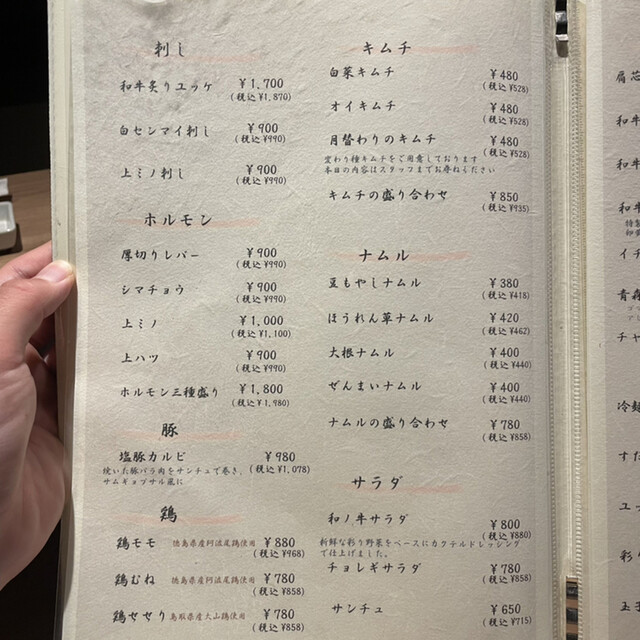 刺し
和牛炙りユッケ ¥1,700
(税込 ¥1,870)
白センマイ刺し ¥900
(税込 ¥990)
上ミノ刺し ¥900
(税込 ¥990)
ホルモン
厚切りレバー ¥900
(税込 ¥990)
シマチョウ ¥900
(税込 ¥990)
上ミノ ¥1,000
(税込 ¥1,100)
上ハツ ¥900
(税込 ¥990)
ホルモン三種盛り ¥1,800
(税込 ¥1,980)
豚
塩豚カルビ ¥980
焼いた豚バラ肉をサンチュで巻き、 (税込 ¥1,078)
サムギョプサル風に
鶏
鶏モモ 徳島県産阿波尾鶏使用 ¥880
(税込 ¥968)
鶏むね 徳島県産阿波尾鶏使用 ¥780
(税込 ¥858)
鶏せせり 鳥取県産大山鶏使用 ¥780
(税込 ¥858)
キムチ
白菜キムチ ¥480
(税込 ¥528)
オイキムチ ¥480
(税込 ¥528)
月替わりのキムチ ¥480
(税込 ¥528)
変わり種キムチをご用意しております
本日の内容はスタッフまでお尋ねください
キムチの盛り合わせ ¥850
(税込 ¥935)
ナムル
豆もやしナムル ¥380
(税込 ¥418)
ほうれん草ナムル ¥420
(税込 ¥462)
大根ナムル ¥400
(税込 ¥440)
ぜんまいナムル ¥400
(税込 ¥440)
ナムルの盛り合わせ ¥780
(税込 ¥858)
サラダ
和ノ牛サラダ ¥800
(税込 ¥880)
新鮮な彩り野菜をベースにカクテルドレッシング
で仕上げました。
チョレギサラダ ¥780
(税込 ¥858)
サンチュ ¥650
(税込 ¥715)
和牛
和牛
和牛
特製
イチ
チャ
冷麺
すだ
ユッ
彩り
玉子